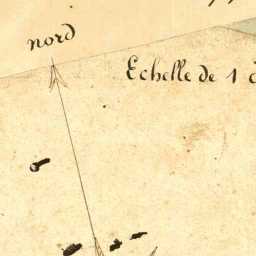 nord
Echelle de 1